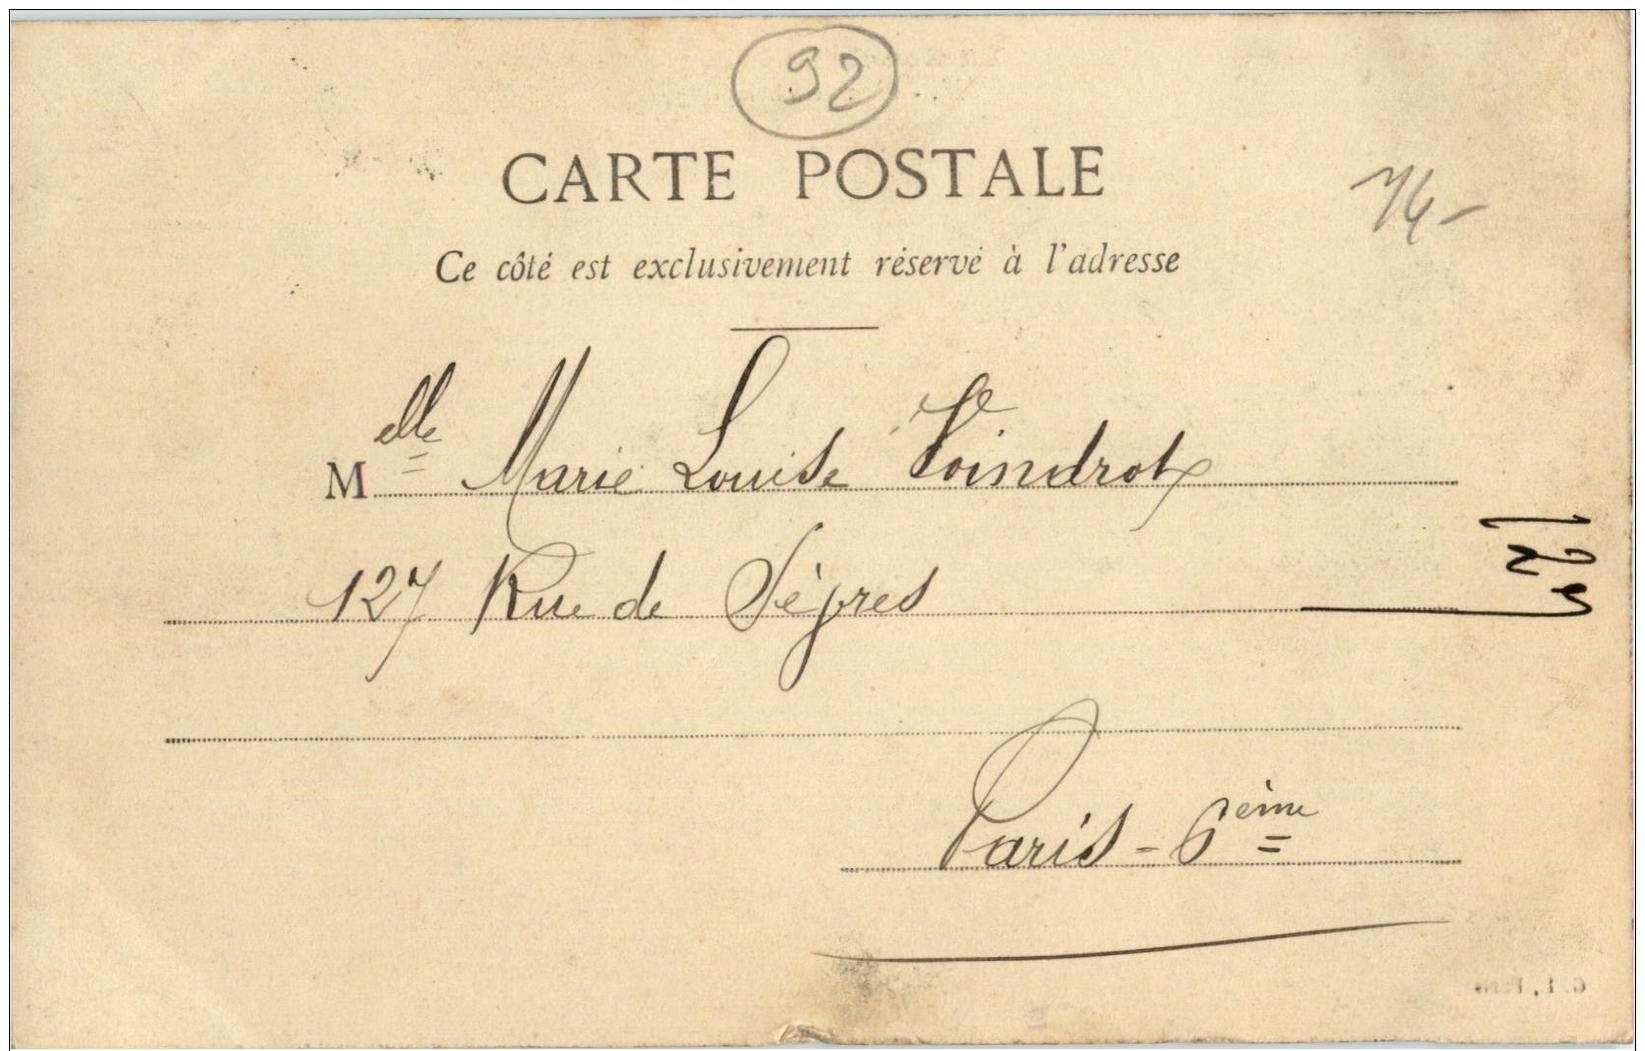 92
CARTE POSTALE
14-
Ce côté est exclusivement réservé à l'adresse
Melle Marie Louise Voindrot
127 Rue de Sèvres
Paris - 6ème